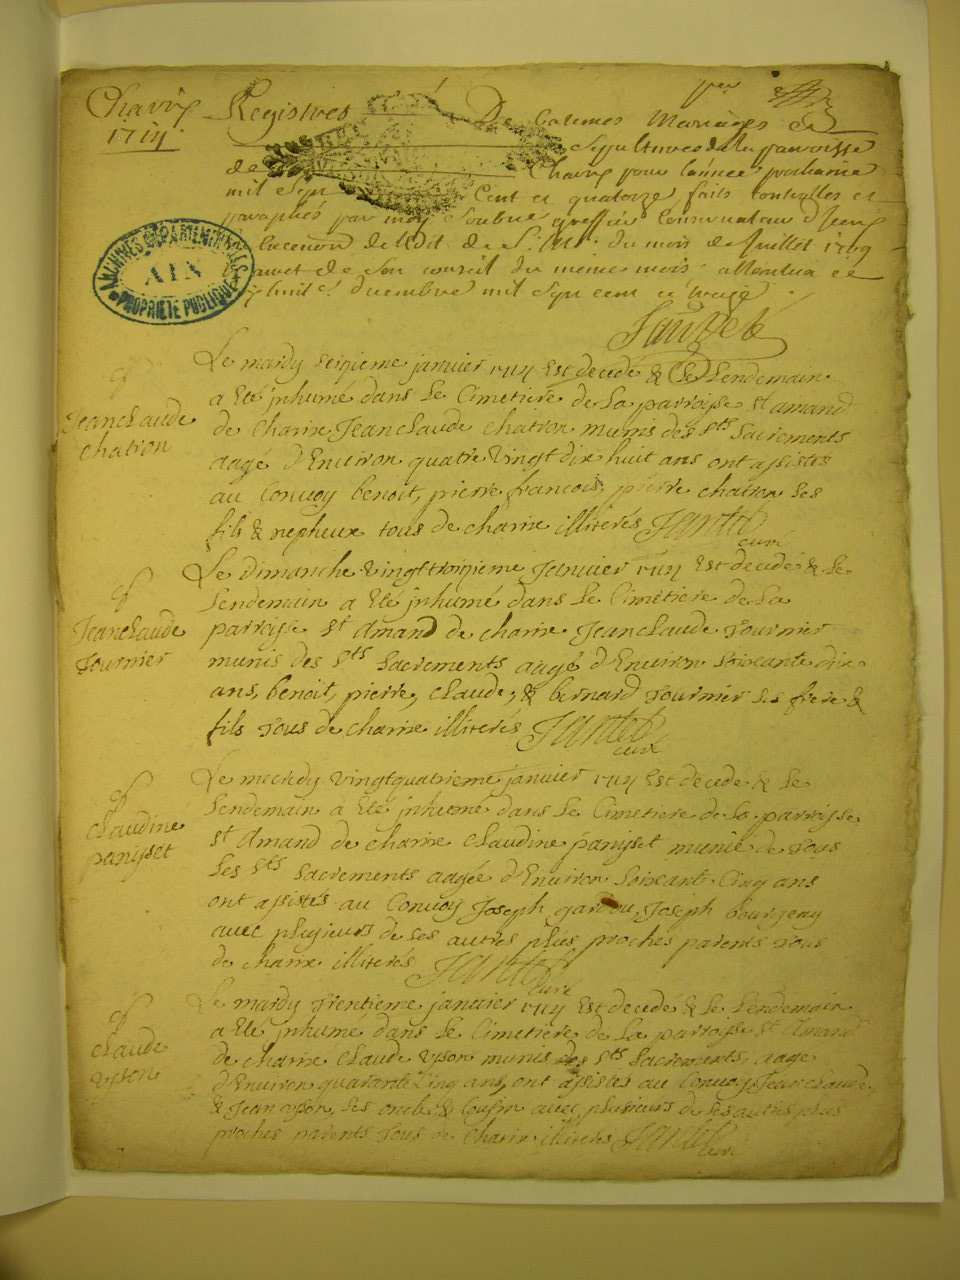 Charix
1714
Registres De Batemes Mariages &
Sepultures de la parroisse
de Charix pour lannee prochaine
mil sept Cent et quatorze faits
paraphés par moy greffier Conservateur
de Ledit de du mois de Juillet 1709
arrest de Son conseil du meme mois
huit decembre mil sept cent et treize
ARCHIVES DÉPARTEMENTALES
AIN
PROPRIÉTÉ PUBLIQUE
Le mardy seizieme janvier 1714 Est decedé & Le Lendemain
JeanClaude
chatron
a Eté jnhumé dans Le Cimetiere de La parroisse st amand
de charix JeanClaude chatron munis des Sts Sacrements
aagé d'Environ quatre vingt dix huit ans ont assistés
au Convoy benoit, pierre francois, pierre chatron ses
fils & nepheux tous de charix illiterés Jantet
curé
Le dimanche vingttroizieme Janvier 1714 Est decedé & Le
JeanClaude
Tournier
Lendemain a Eté jnhumé dans Le Cimetiere de La
parroisse st Amand de charix JeanClaude Tournier
munis des Sts Sacrements aagé d'Environ soixante dix
ans, benoit, pierre, claude, & bernard Tournier ses frere &
fils tous de charix illiterés Jantet
curé
Le mecredy vingtquatrieme janvier 1714 Est decedé & Le
claudine
panisset
Lendemain a Eté jnhumé dans Le Cimetiere de La parroisse
st Amand de charix claudine panisset munie de tous
Les Sts Sacrements aagée d'Environ soixante Cinq ans
ont assistés au Convoy Joseph gardou, Joseph bourgeay
avec plusieurs de ses autres plus proches parents tous
de charix illiterés Jantet
curé
Le mardy trentieme janvier 1714 Est decedé & Le Lendemain
claude
a Eté jnhumé dans Le Cimetiere de La parroisse st Amand
de charix claude munis des Sts Sacrements, aagé
d'Environ quarante Cinq ans, ont assistés au Convoy JeanClaude,
& Jean ses oncle, & Cousin avec plusieurs de ses autres plus
proches parents tous de Charix illiterés Jantet
curé